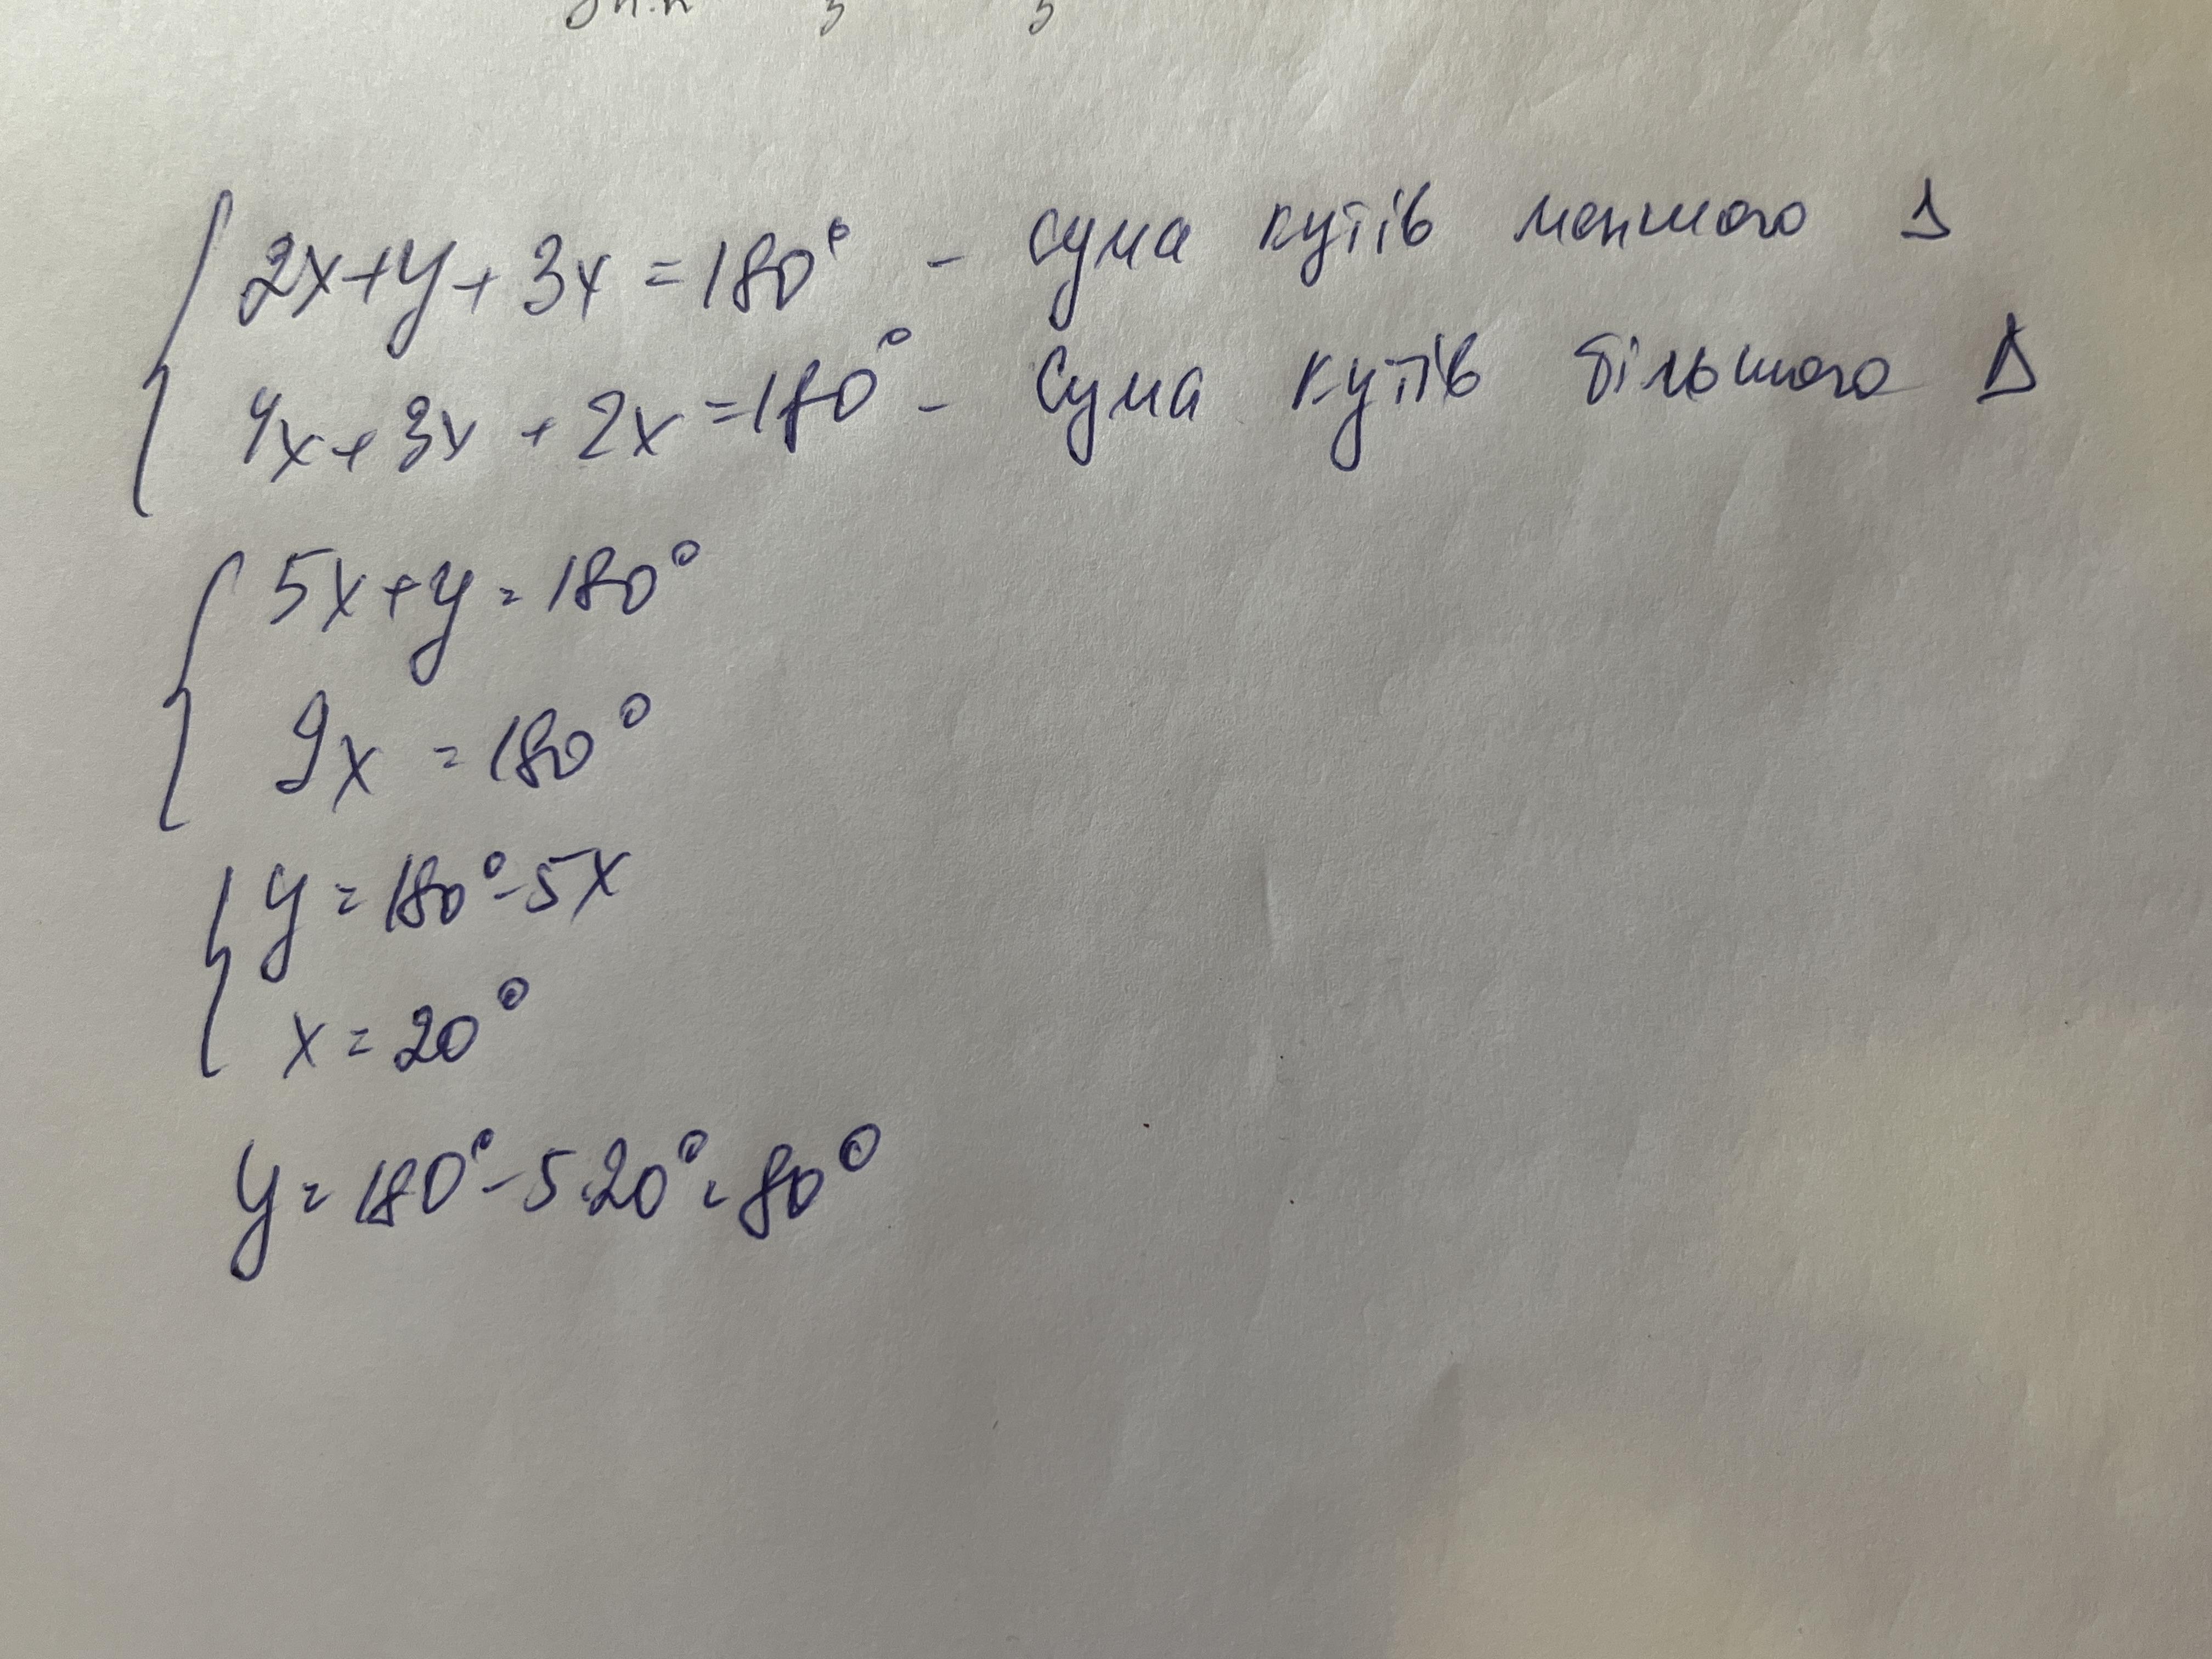 2x+y+3x=180° - сума кутів меншого Δ
4x+3x+2x=180° - Сума кутів більшого Δ
5x+y=180°
9x=180°
y=180°-5x
x=20°
y=180°-5·20°=80°